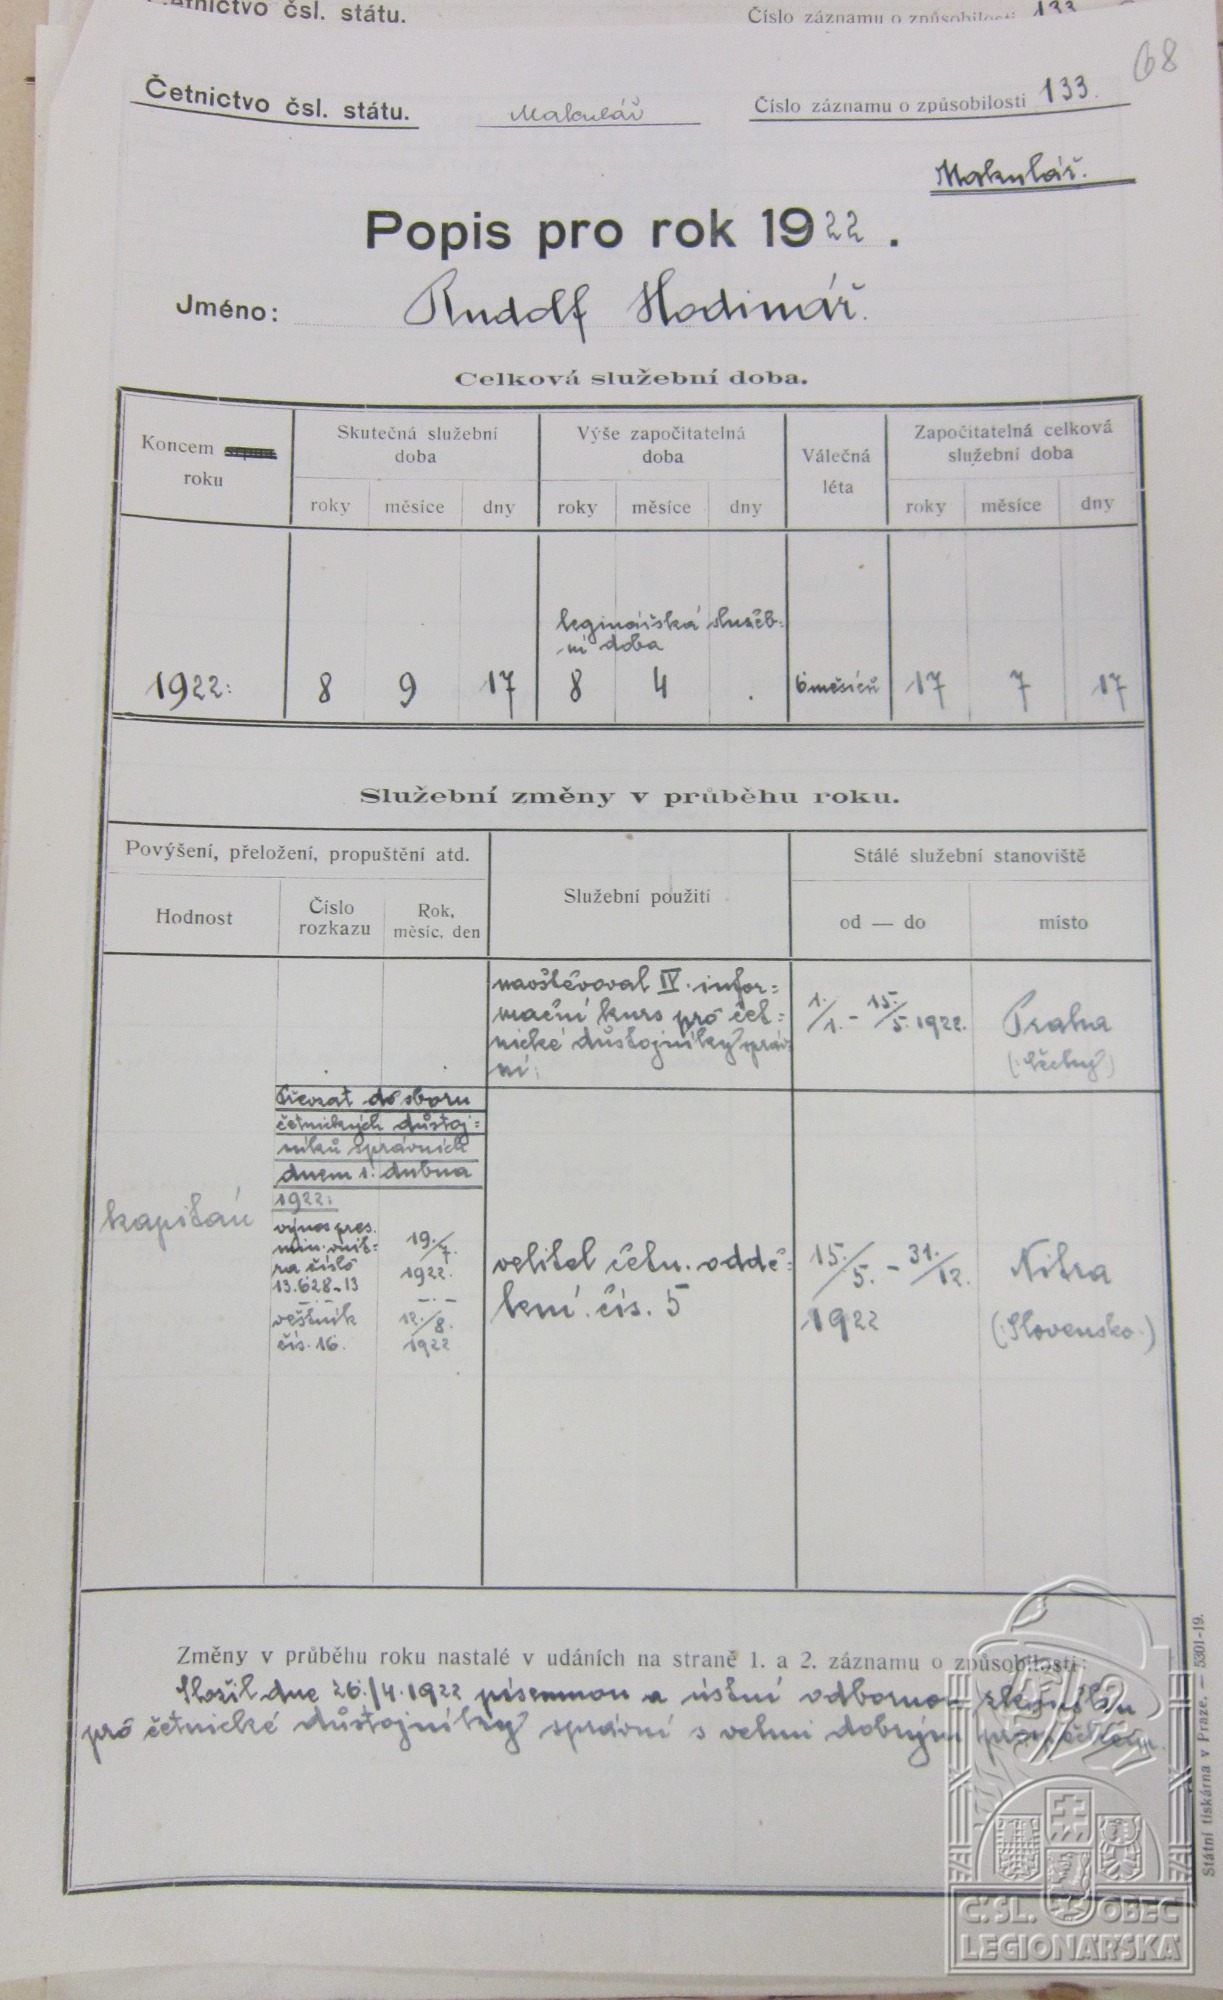 četnictvo čsl. státu.
Číslo záznamu o způsobilosti 133
68
Četnictvo čsl. státu.
Makulář
Číslo záznamu o způsobilosti 133.
Makulář.
Popis pro rok 1922.
Jméno: Rudolf Hodinář.
Celková služební doba.
Koncem
roku
Skutečná služební
doba
Výše započitatelná
doba
Válečná
léta
Započitatelná celková
služební doba
roky měsíce dny roky měsíce dny roky měsíce dny
leginářská služeb-
ní doba
1922: 8 9 17 8 4 . 6 měsíců 17 7 17
Služební změny v průběhu roku.
Povýšení, přeložení, propuštění atd.
Služební použití
Stálé služební stanoviště
Hodnost
Číslo
rozkazu
Rok,
měsíc, den
od — do
místo
navštěvoval IV. infor=
mační kurs pro čet=
nické důstojníky správ=
ní.
1./1. - 15./5. 1922.
Praha
(Čechy)
Převzat do sboru
četnických důstoj=
níků správních
dnem 1. dubna
1922:
kapitán
výnos pres.
min. vnit=
ra číslo
13.628-13
19./7.
1922.
věstník
čís. 16.
12./8.
1922
velitel četn. oddě=
lení čís. 5
15./5. - 31./12.
1922
Nitra
(Slovensko.)
Změny v průběhu roku nastalé v udáních na straně 1. a 2. záznamu o způsobilosti:
Složil dne 26./4. 1922 písemnou a ústní odbornou zkoušku
pro četnické důstojníky správní s velmi dobrým prospěchem.
Státní tiskárna v Praze. — 5301-19.
Č.SL. OBEC
LEGIONÁŘSKÁ